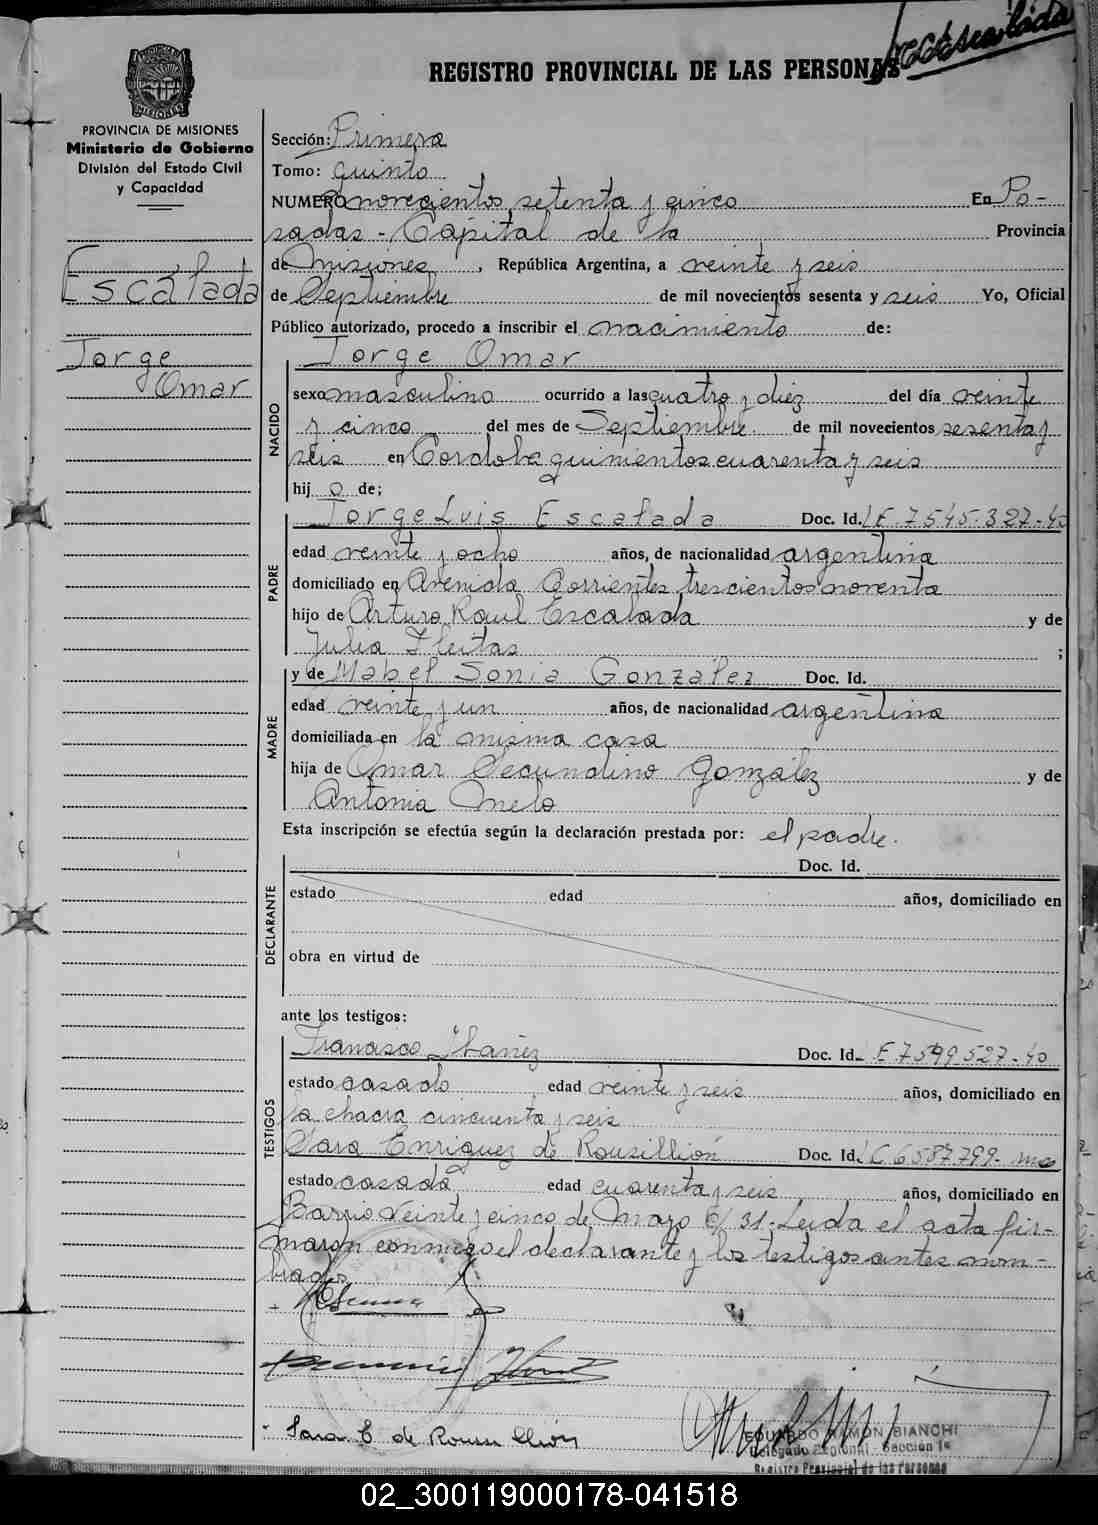 Escalada
REGISTRO PROVINCIAL DE LAS PERSONAS
PROVINCIA DE MISIONES
Ministerio de Gobierno
División del Estado Civil
y Capacidad
Escalada
Jorge
Omar
Sección: Primera
Tomo: quinto
NUMERO novecientos setenta y cinco En Po-
sadas - Capital de la Provincia
de Misiones, República Argentina, a veinte y seis
de Septiembre de mil novecientos sesenta y seis Yo, Oficial
Público autorizado, procedo a inscribir el nacimiento de:
Jorge Omar
NACIDO
sexo masculino ocurrido a las cuatro y diez del día veinte
y cinco del mes de Septiembre. de mil novecientos sesenta y
seis en Cordoba quinientos cuarenta y seis
hij o de;
PADRE
Jorge Luis Escalada Doc. Id. LE. 7.545.327-40
edad veinte y ocho años, de nacionalidad argentina
domiciliado en Avenida Corrientes trescientos noventa
hijo de Arturo Raul Escalada y de
Julia Fleitas ;
MADRE
y de Mabel Sonia González Doc. Id.
edad veinte y un años, de nacionalidad argentina
domiciliada en la misma casa
hija de Omar Secundino González y de
Antonia Melo
Esta inscripción se efectúa según la declaración prestada por: el padre.
DECLARANTE
Doc. Id.
estado edad años, domiciliado en
obra en virtud de
ante los testigos:
TESTIGOS
Francisco Ibañez Doc. Id. E 7599527-40
estado casado edad veinte y seis años, domiciliado en
la chacra cincuenta y seis
Sara Enriquez de Rousillión Doc. Id. LC 6587799-
estado casada edad cuarenta y seis años, domiciliado en
Barrio Veinte y cinco de Mayo C/ 31 - Leida el acta fir-
maron conmigo el declarante y los testigos antes nom-
brados
Sara E. de Rousillión
EDUARDO RAMON BIANCHI
Delegado Regional - Sección 1ª
Registro Provincial de las Personas
02_300119000178-041518